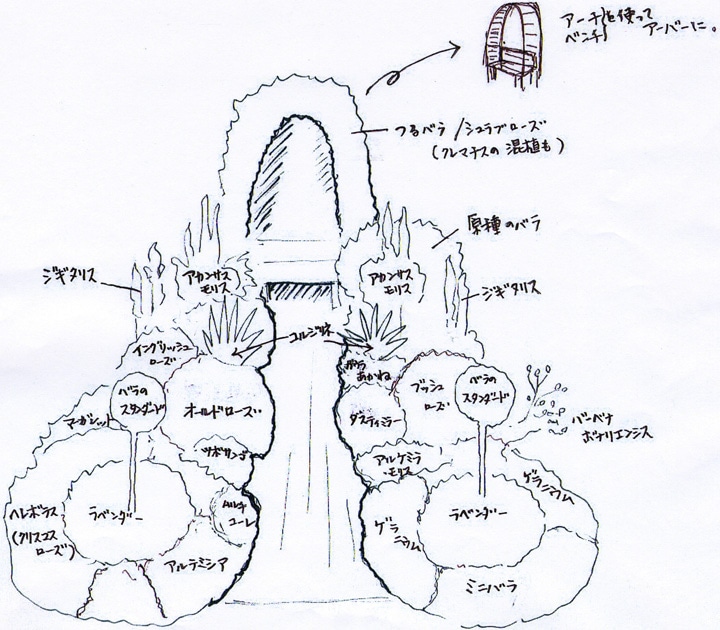 アーチ
ベンチ
を使って
アーバーに。
つるバラ/シュラブローズ
(クレマチスの混植も)
原種のバラ
ジギタリス
アカンサス
モリス
アカンサス
モリス
ジギタリス
コルジリネ
イングリッシュ
ローズ
あかね
バラの
スタンダード
マーガレット
オールドローズ
ダスティミラー
ブッシュ
ローズ
バラの
スタンダード
バーベナ
ボナリエンシス
ツボサンゴ
アルケミラ
・モリス
ゲラニウム
ヘレボラス
(クリスマス
ローズ)
ラベンダー
アルテミシア
ゲラ
ニウム
ラベンダー
ミニバラ